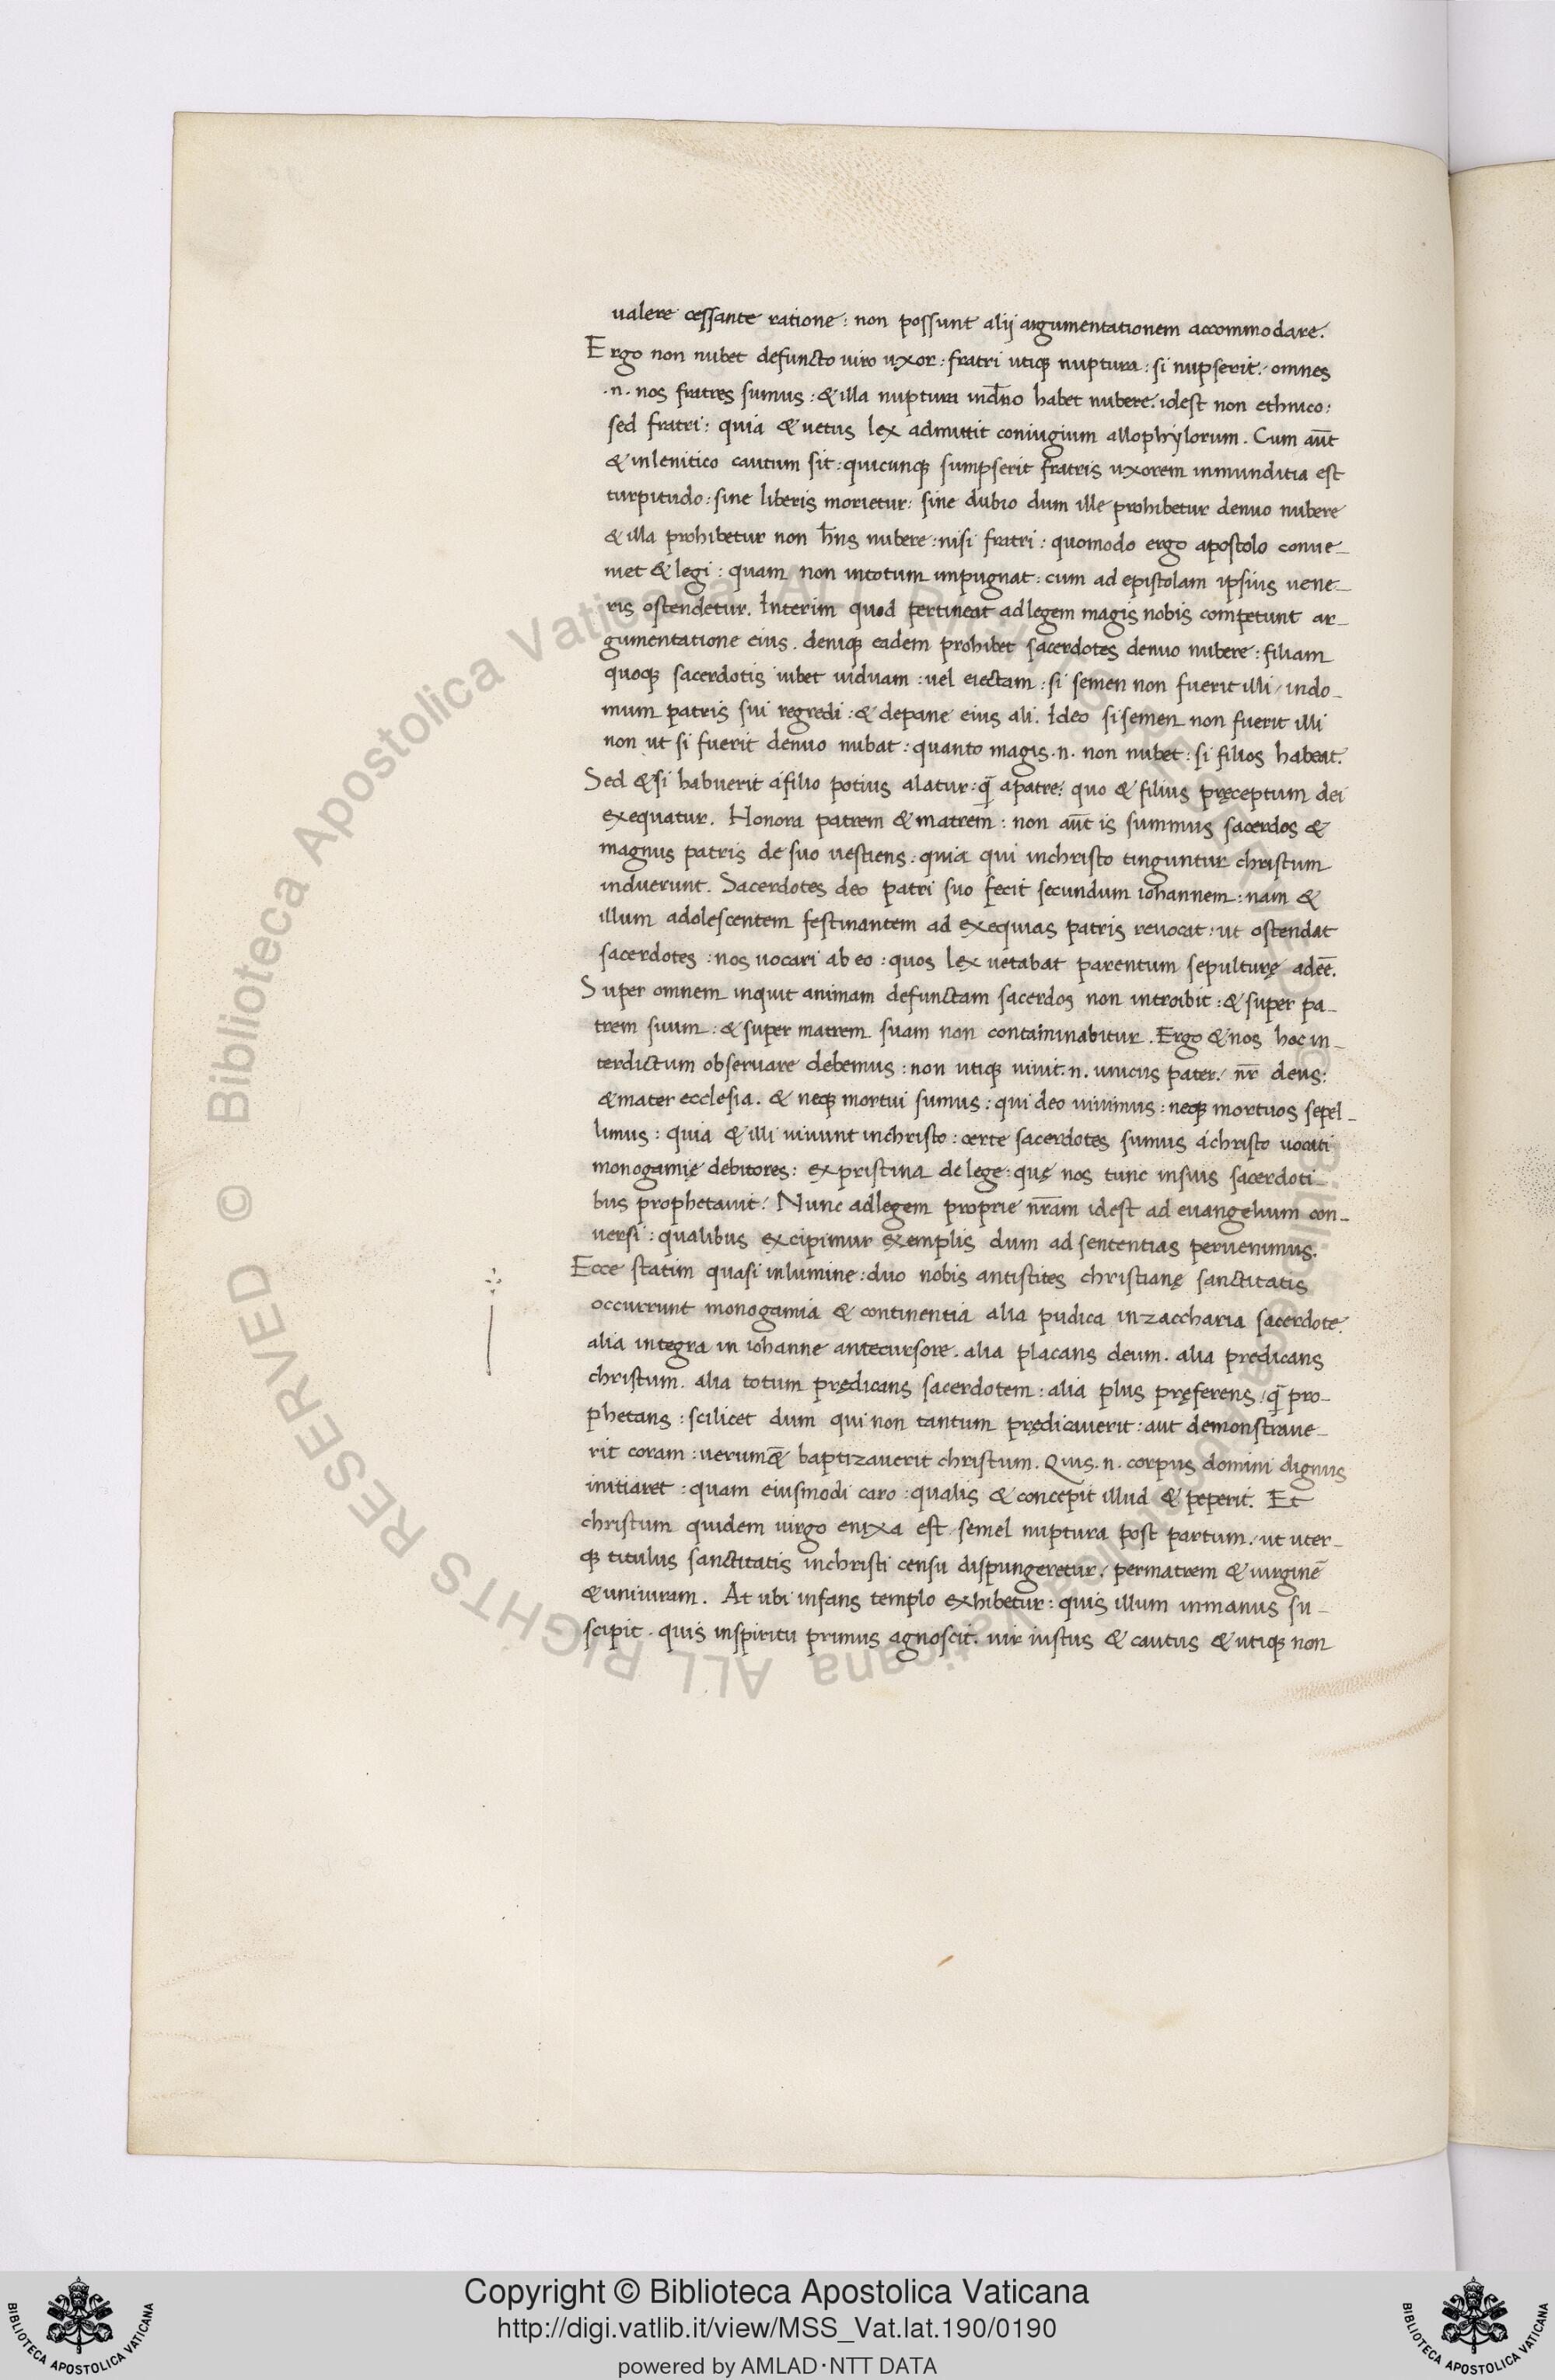 ualere cessante ratione: non possunt alij argumentationem accommodare.
Ergo non nubet defuncto uiro uxor: fratri utiqꝫ nuptura: si nupserit. omnes
.n. nos fratres sumus: & illa nuptura in dño habet nubere. idest non ethnico:
sed fratri: quia & uetus lex admittit coniugium allophylorum. Cum aũt
& inleuitico cautum sit: quicunqꝫ sumpserit fratris uxorem inmunditia est
turpitudo: sine liberis morietur: sine dubio dum ille prohibetur denuo nubere
& illa prohibetur non hñs nubere: nisi fratri: quomodo ergo apostolo conue-
niet & legi: quam non intotum inpugnat: cum ad epistolam ipsius uene-
ris ostendetur. Interim quod pertineat adlegem magis nobis competunt ar-
gumentatione eius. deniqꝫ eadem prohibet sacerdotes denuo nubere: filiam
quoqꝫ sacerdotis iubet uiduam: uel eiectam: si semen non fuerit illi / indo-
mum patris sui regredi: & depane eius ali. Ideo si semen non fuerit illi
non ut si fuerit denuo nubat: quanto magis .n. non nubet: si filios habeat.
Sed & si habuerit áfilio potius alatur: q̃ apatre: quo & filius pręceptum dei
exequatur. Honora patrem & matrem: non aũt is summus sacerdos &
magnus patris de suo uestiens: quia qui inchristo tinguntur christum
induerunt. Sacerdotes deo patri suo fecit secundum iohannem: nam &
illum adolescentem festinantem ad exequias patris reuocat: ut ostendat
sacerdotes: nos uocari ab eo: quos lex uetabat parentum sepulturę adeē.
Super omnem inquit animam defunctam sacerdos non introibit: & super pa-
trem suum: & super matrem suam non contaminabitur. Ergo & nos hoc in-
terdictum obseruare debemus: non utiqꝫ uiuit .n. unicus pater. nr̃ deus:
& mater ecclesia. & neqꝫ mortui sumus: qui deo uiuimus: neqꝫ mortuos sepel-
limus: quia & illi uiuunt inchristo: certe sacerdotes sumus áchristo uocati
monogamię debitores: expristina de lege: quę nos tunc insuis sacerdoti-
bus prophetauit. Nunc adlegem proprie nr̃am idest ad euangelium con-
uersi: qualibus excipimur exemplis dum ad sententias peruenimus.
Ecce statim quasi inlumine: duo nobis antistites christianę sanctitatis
occurrunt monogamia & continentia alia pudica inzaccharia sacerdote.
alia integra in iohanne antecursore. alia placans deum. alia prędicans
christum. alia totum prędicans sacerdotem: alia plus pręferens / q̃ pro-
phetans: scilicet dum qui non tantum prędicauerit: aut demonstraue-
rit coram: uerumẽ& baptizauerit christum. Quis .n. corpus domini dignius
initiaret: quam eiusmodi caro: qualis & concepit illud & peperit. Et
christum quidem uirgo enixa est / semel nuptura post partum. ut uter-
qꝫ titulus sanctitatis inchristi censu dispungeretur / permatrem & uirginē
& uniuiram. At ubi infans templo exhibetur: quis illum inmanus su-
scipit. quis inspiritu primus agnoscit. uir iustus & cautus & utiqꝫ non
© Biblioteca Apostolica Vaticana ALL RIGHTS RESERVED
Copyright © Biblioteca Apostolica Vaticana
http://digi.vatlib.it/view/MSS_Vat.lat.190/0190
powered by AMLAD·NTT DATA
BIBLIOTECA APOSTOLICA VATICANA
BIBLIOTECA APOSTOLICA VATICANA